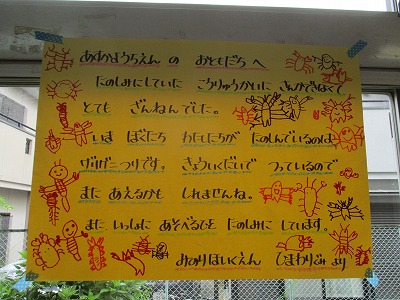 あゆみようちえん の おともだち へ
たのしみにしていた こうりゅうかいに さんかできなくて
とても ざんねんでした。
いま ぼくたち わたしたちが たのしんでいるのは
ザリガニつりです。 きょうしつでも つっているので
また あえるかも しれませんね。
また、いっしょに あそべるひを たのしみにしています
みのりほいくえん ひまわりぐみ より